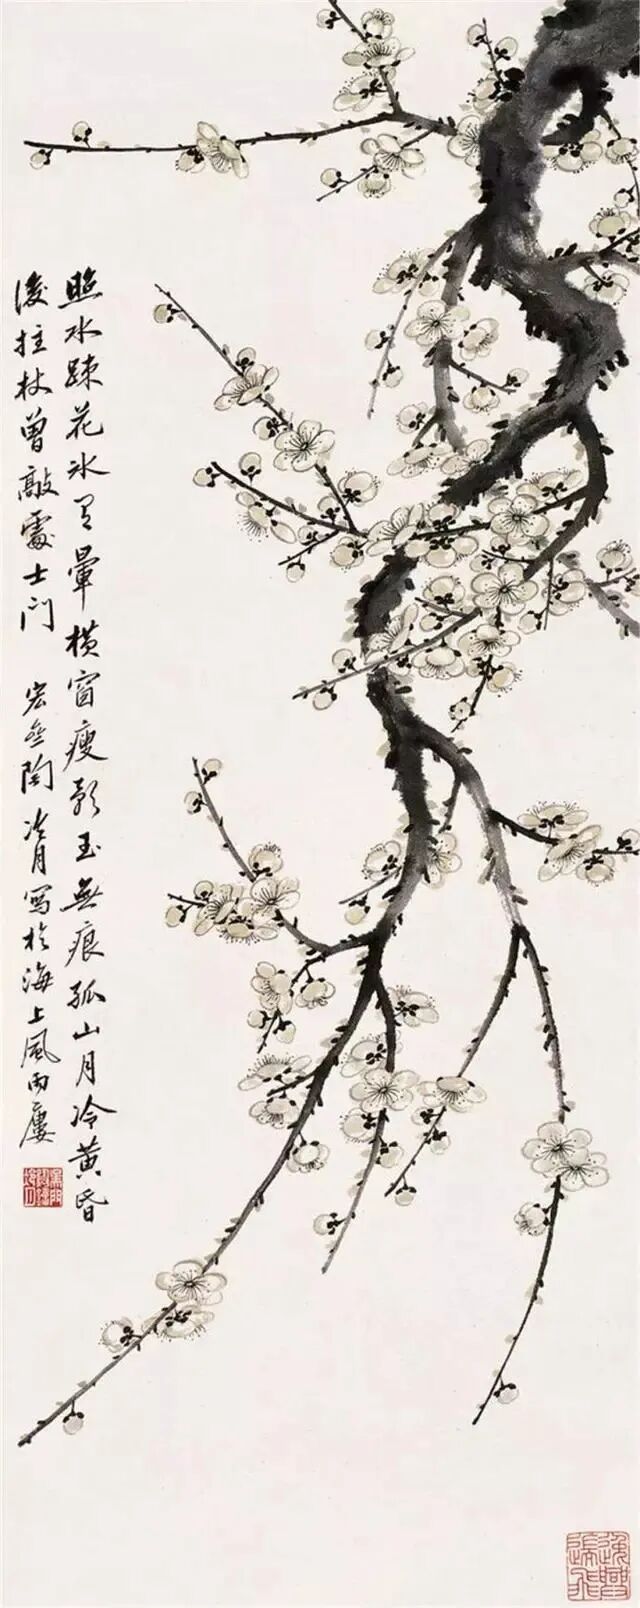 照水疎花冰有暈橫窗瘦影玉無痕孤山月冷黃昏
後拄杖曾敲處士門 宏盦陶冷月寫於海上風雨廔